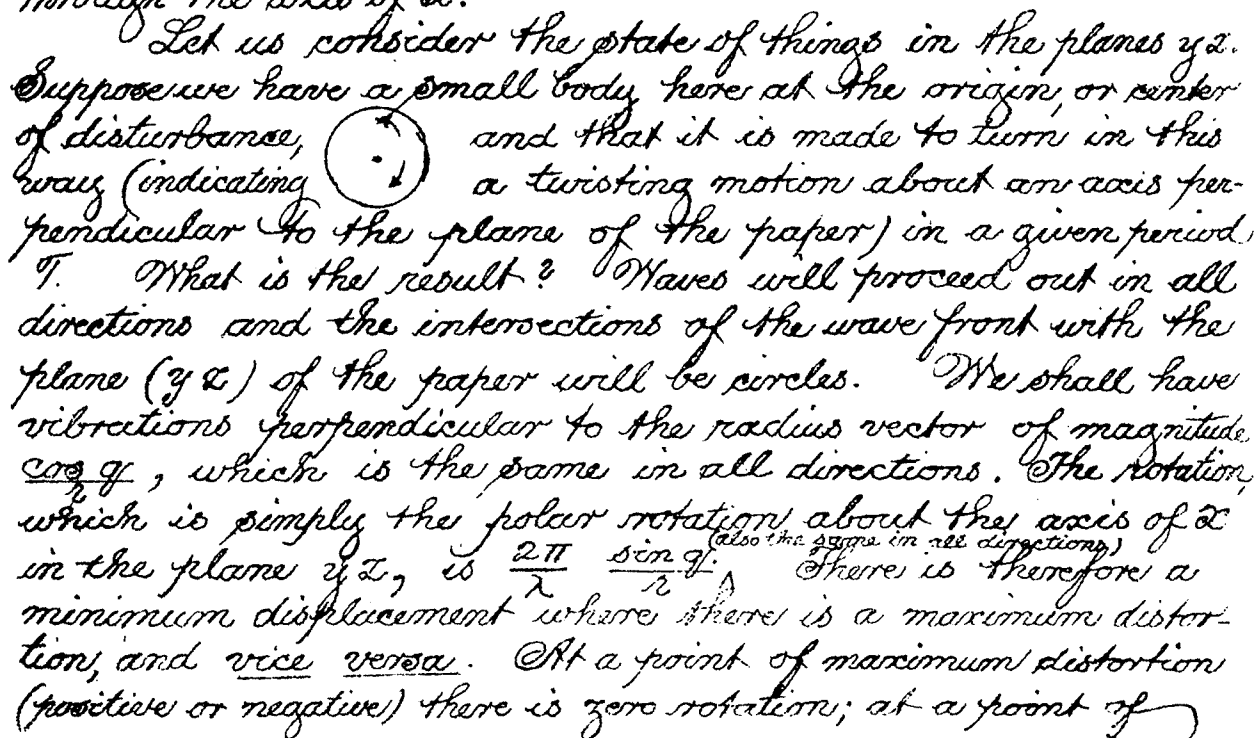 through the axis of x.
Let us consider the state of things in the planes yz.
Suppose we have a small body here at the origin, or center
of disturbance, and that it is made to turn in this
way (indicating a twisting motion about an axis per-
pendicular to the plane of the paper) in a given period
T. What is the result? Waves will proceed out in all
directions and the intersections of the wave front with the
plane (yz) of the paper will be circles. We shall have
vibrations perpendicular to the radius vector of magnitude
cos q / r, which is the same in all directions. The rotation,
which is simply the polar rotation about the axis of x
(also the same in all directions)
in the plane yz, is 2π/λ sin q/r. There is therefore a
minimum displacement where there is a maximum distor-
tion, and vice versa. At a point of maximum distortion
(positive or negative) there is zero rotation; at a point of